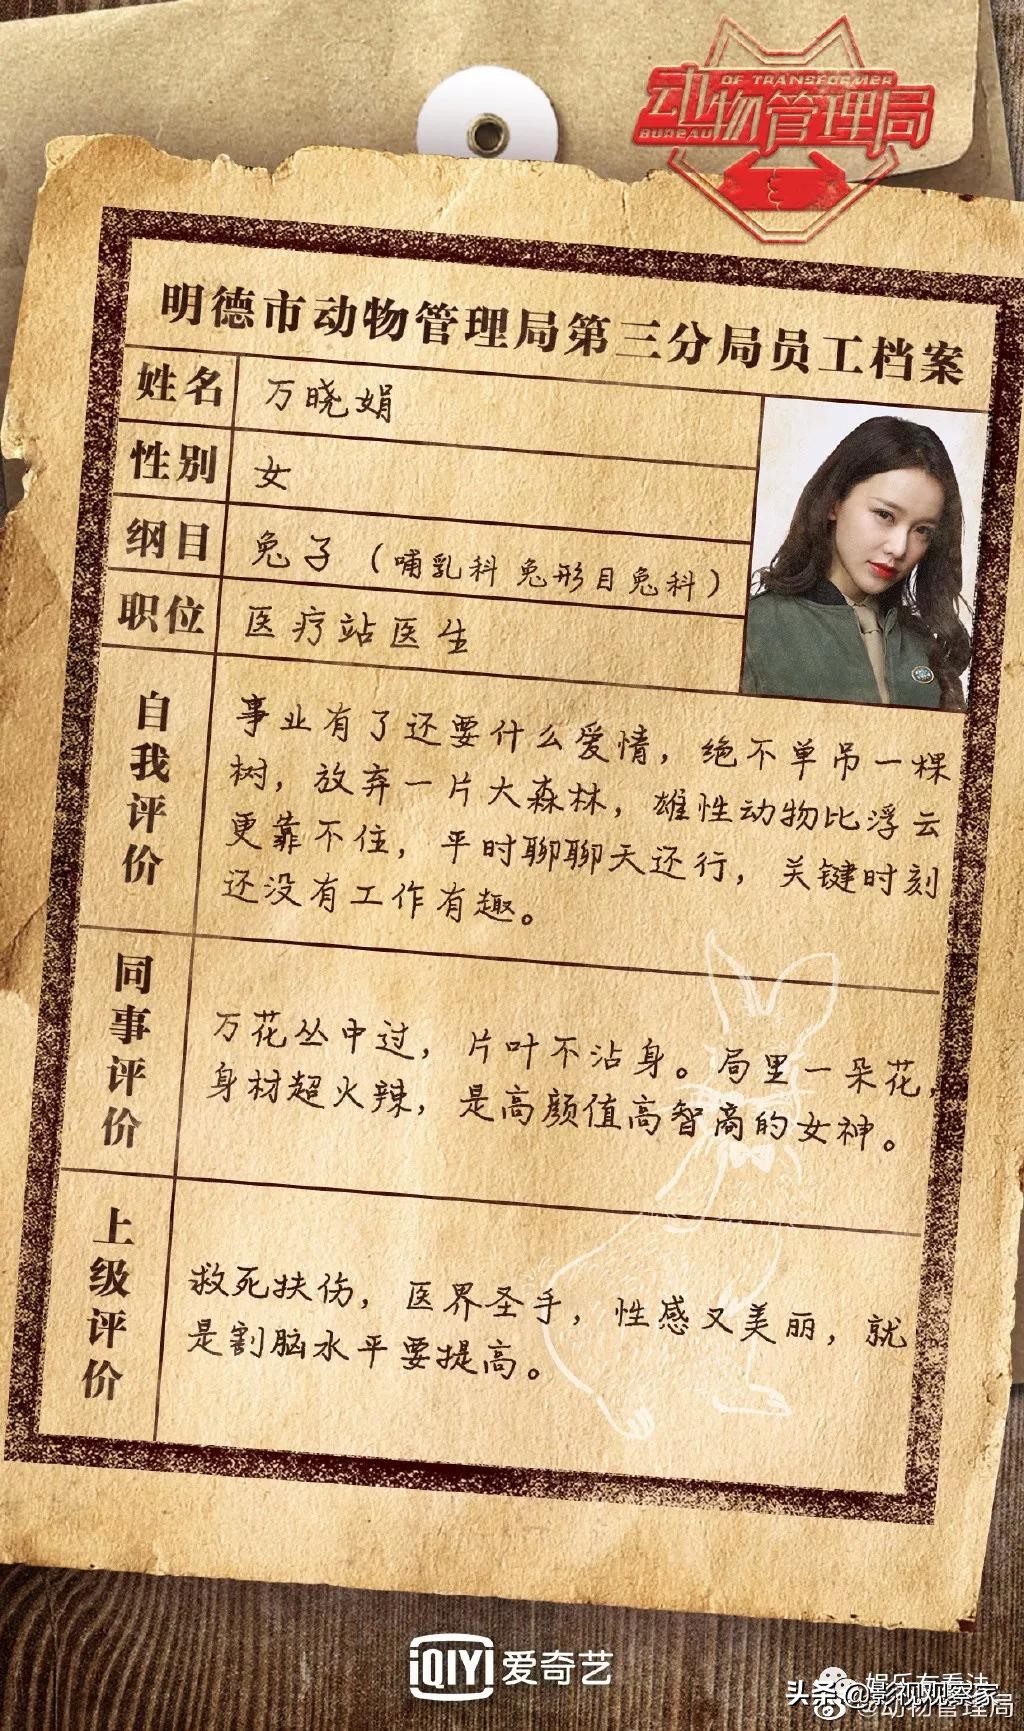 OF TRANSFORMER
动物管理局
BUREAU
明德市动物管理局第三分局员工档案
姓名 万晓娟
性别 女
纲目 兔子（哺乳科 兔形目兔科）
职位 医疗站医生
自我评价
事业有了还要什么爱情，绝不单吊一棵
树，放弃一片大森林，雄性动物比浮云
更靠不住，平时聊聊天还行，关键时刻
还没有工作有趣。
同事评价
万花丛中过，片叶不沾身。局里一朵花，
身材超火辣，是高颜值高智商的女神。
上级评价
救死扶伤，医界圣手，性感又美丽，就
是割脑水平要提高。
iQIYI 爱奇艺
娱乐有看法
头条@影视观察家
@动物管理局